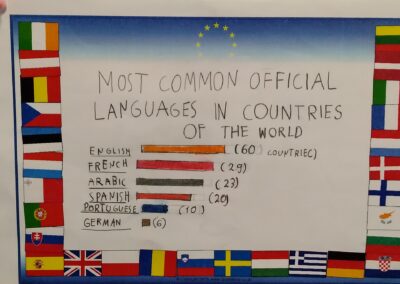 MOST COMMON OFFICIAL
LANGUAGES IN COUNTRIES
OF THE WORLD
ENGLISH (60 COUNTRIEC)
FRENCH (29)
ARABIC (23)
SPANISH (20)
PORTUGUESE (10)
GERMAN (6)